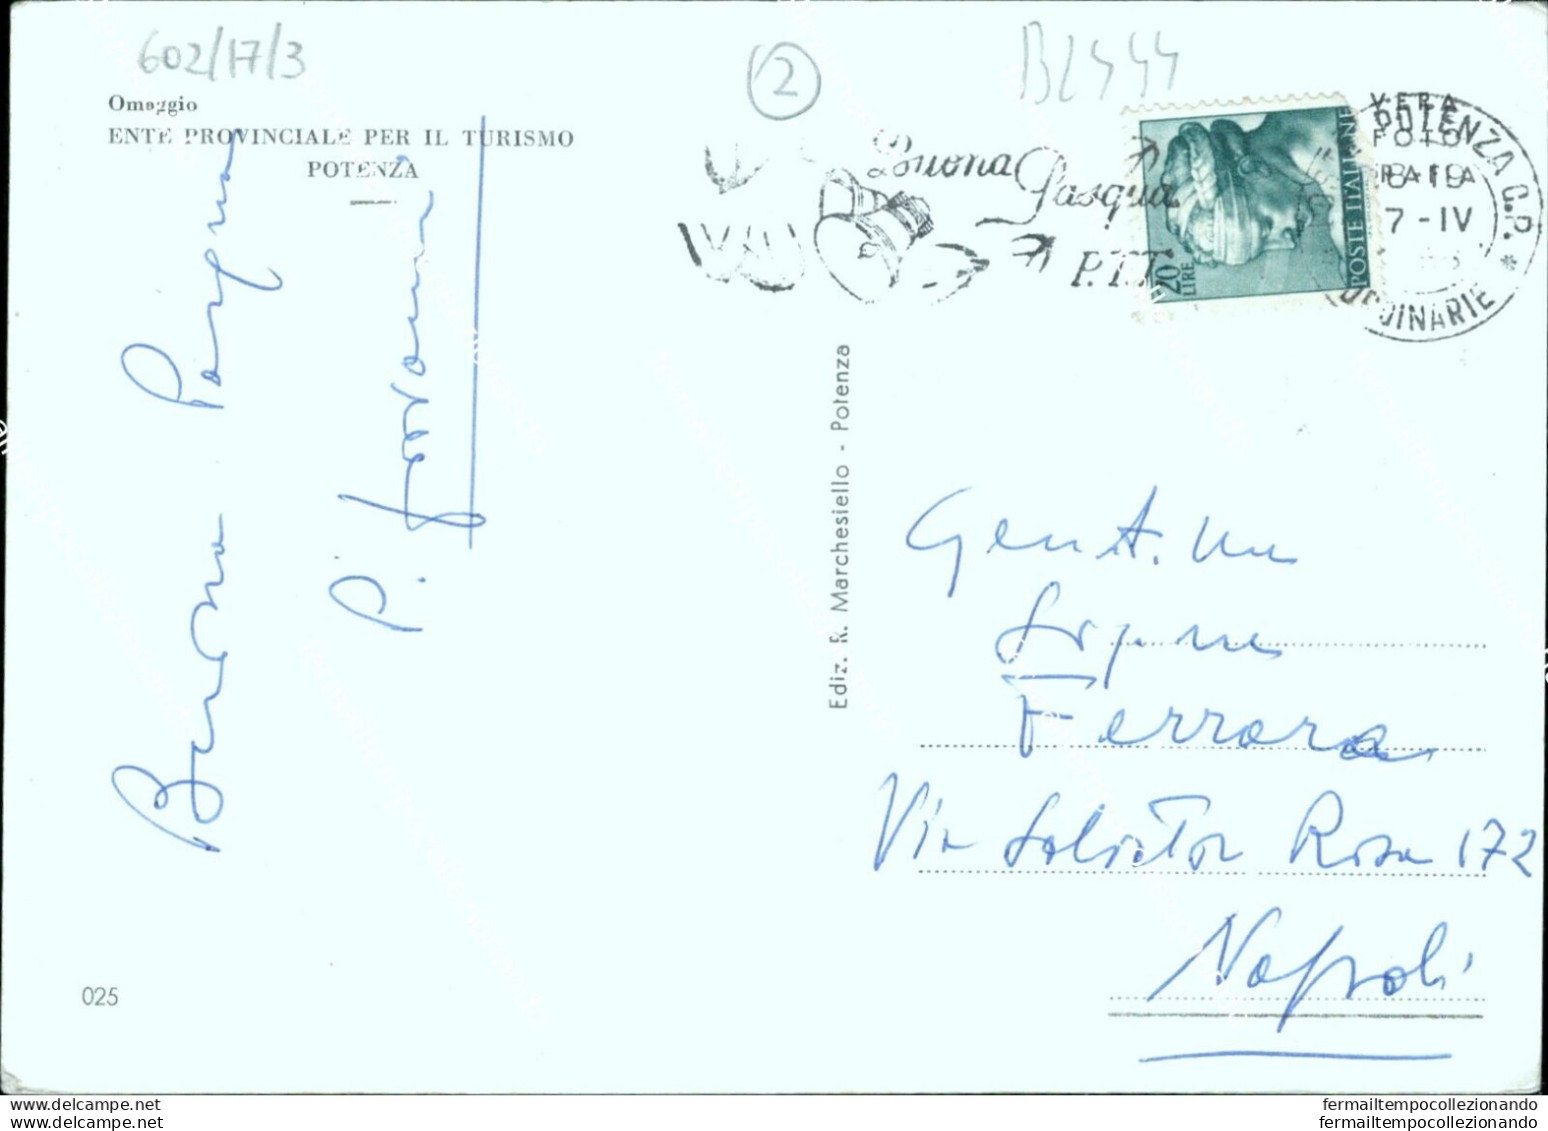 602/17/3
2
Omaggio
ENTE PROVINCIALE PER IL TURISMO
POTENZA
Buona Pasqua
P.
Buona
Pasqua
P.T.T.
20
LIRE
POSTE ITALIANE
VERA
FOTO
POTENZA C.P. *
18-19
7-IV
ORDINARIE
Ediz. R. Marchesiello - Potenza
Gent.
Ferrara
Via Salvator Rosa 172
Napoli
025
delcampe.net
delcampe.net
fermailtempocollezionando
fermailtempocollezionando